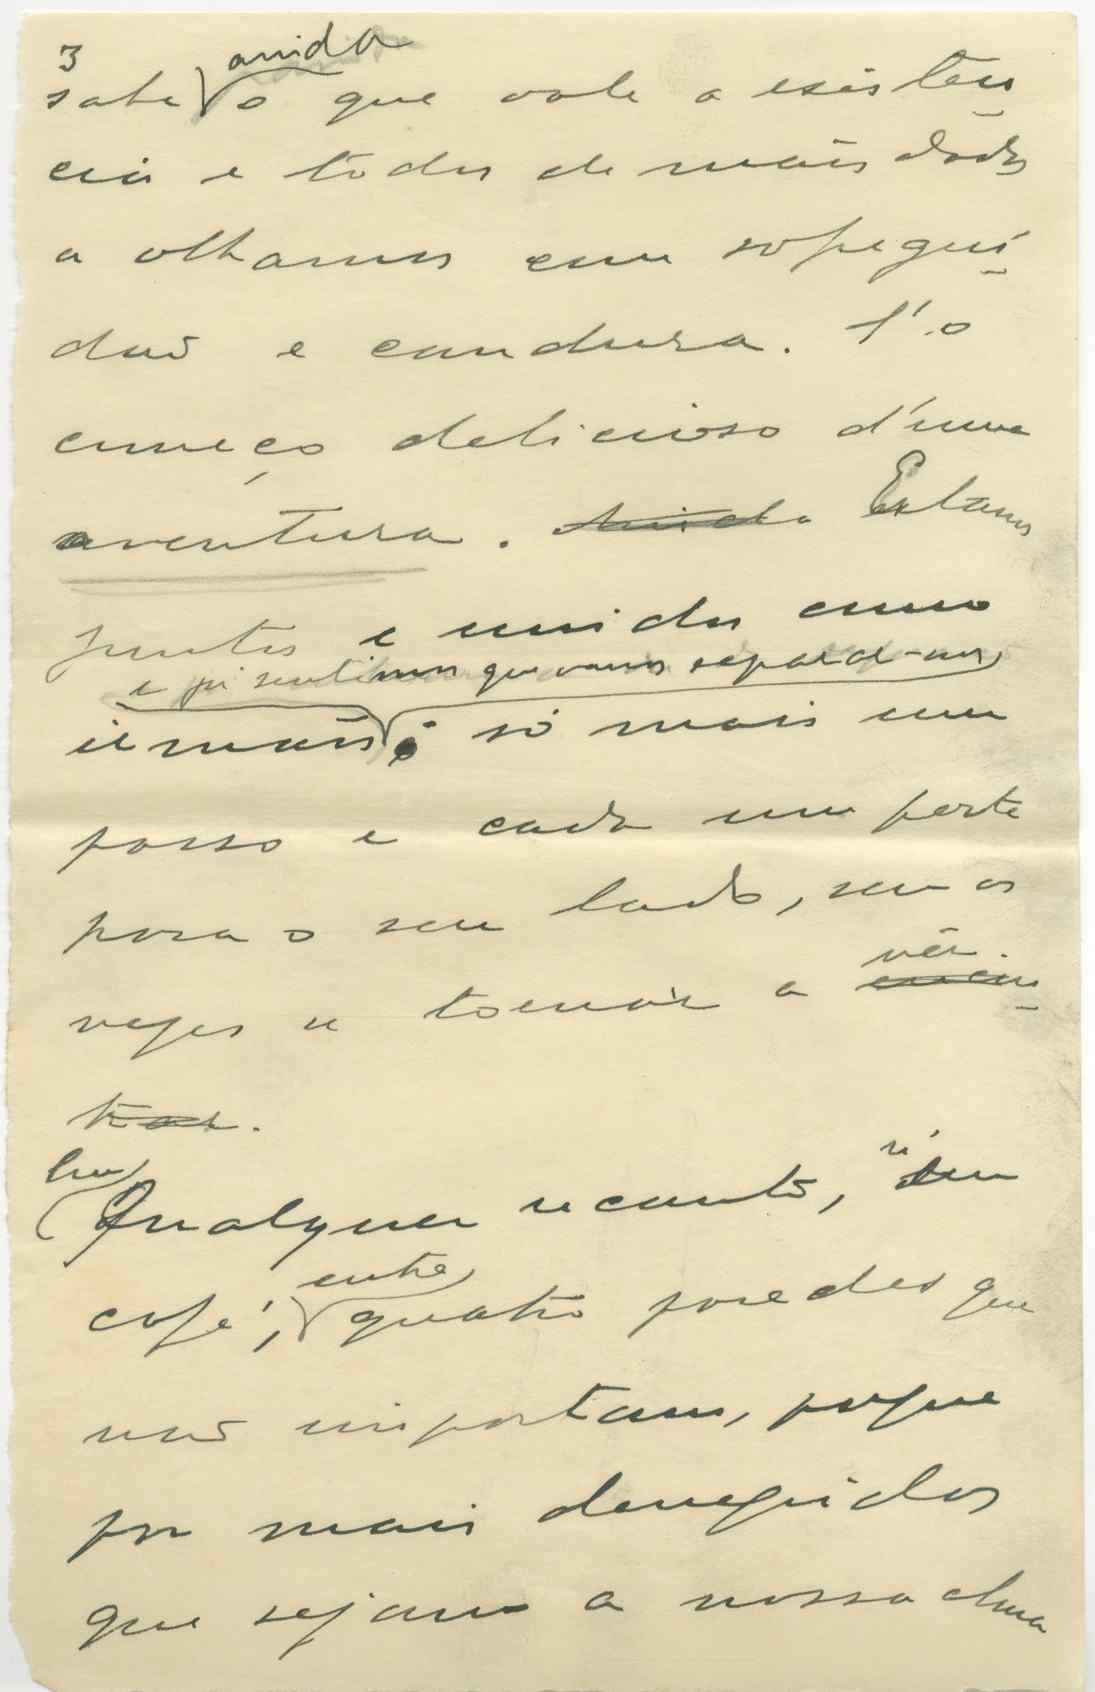 3
ainda
sabe o que vale a existen
cia e todos de mãos dadas
a olhamos com sofregui
dão e candura. É o
começo delicioso d'uma
aventura. Ainda Estamos
juntos e unidos como
e já sentimos que vamos separar-nos
irmãos; só mais um
passo e cada um parte
para o seu lado, sem as
vezes se tornar a encon
vêr.
trar.
Um
Qualquer recanto, n'um
café, entre quatro paredes que
não importam, porque
por mais denegridas
que sejam a nossa alma